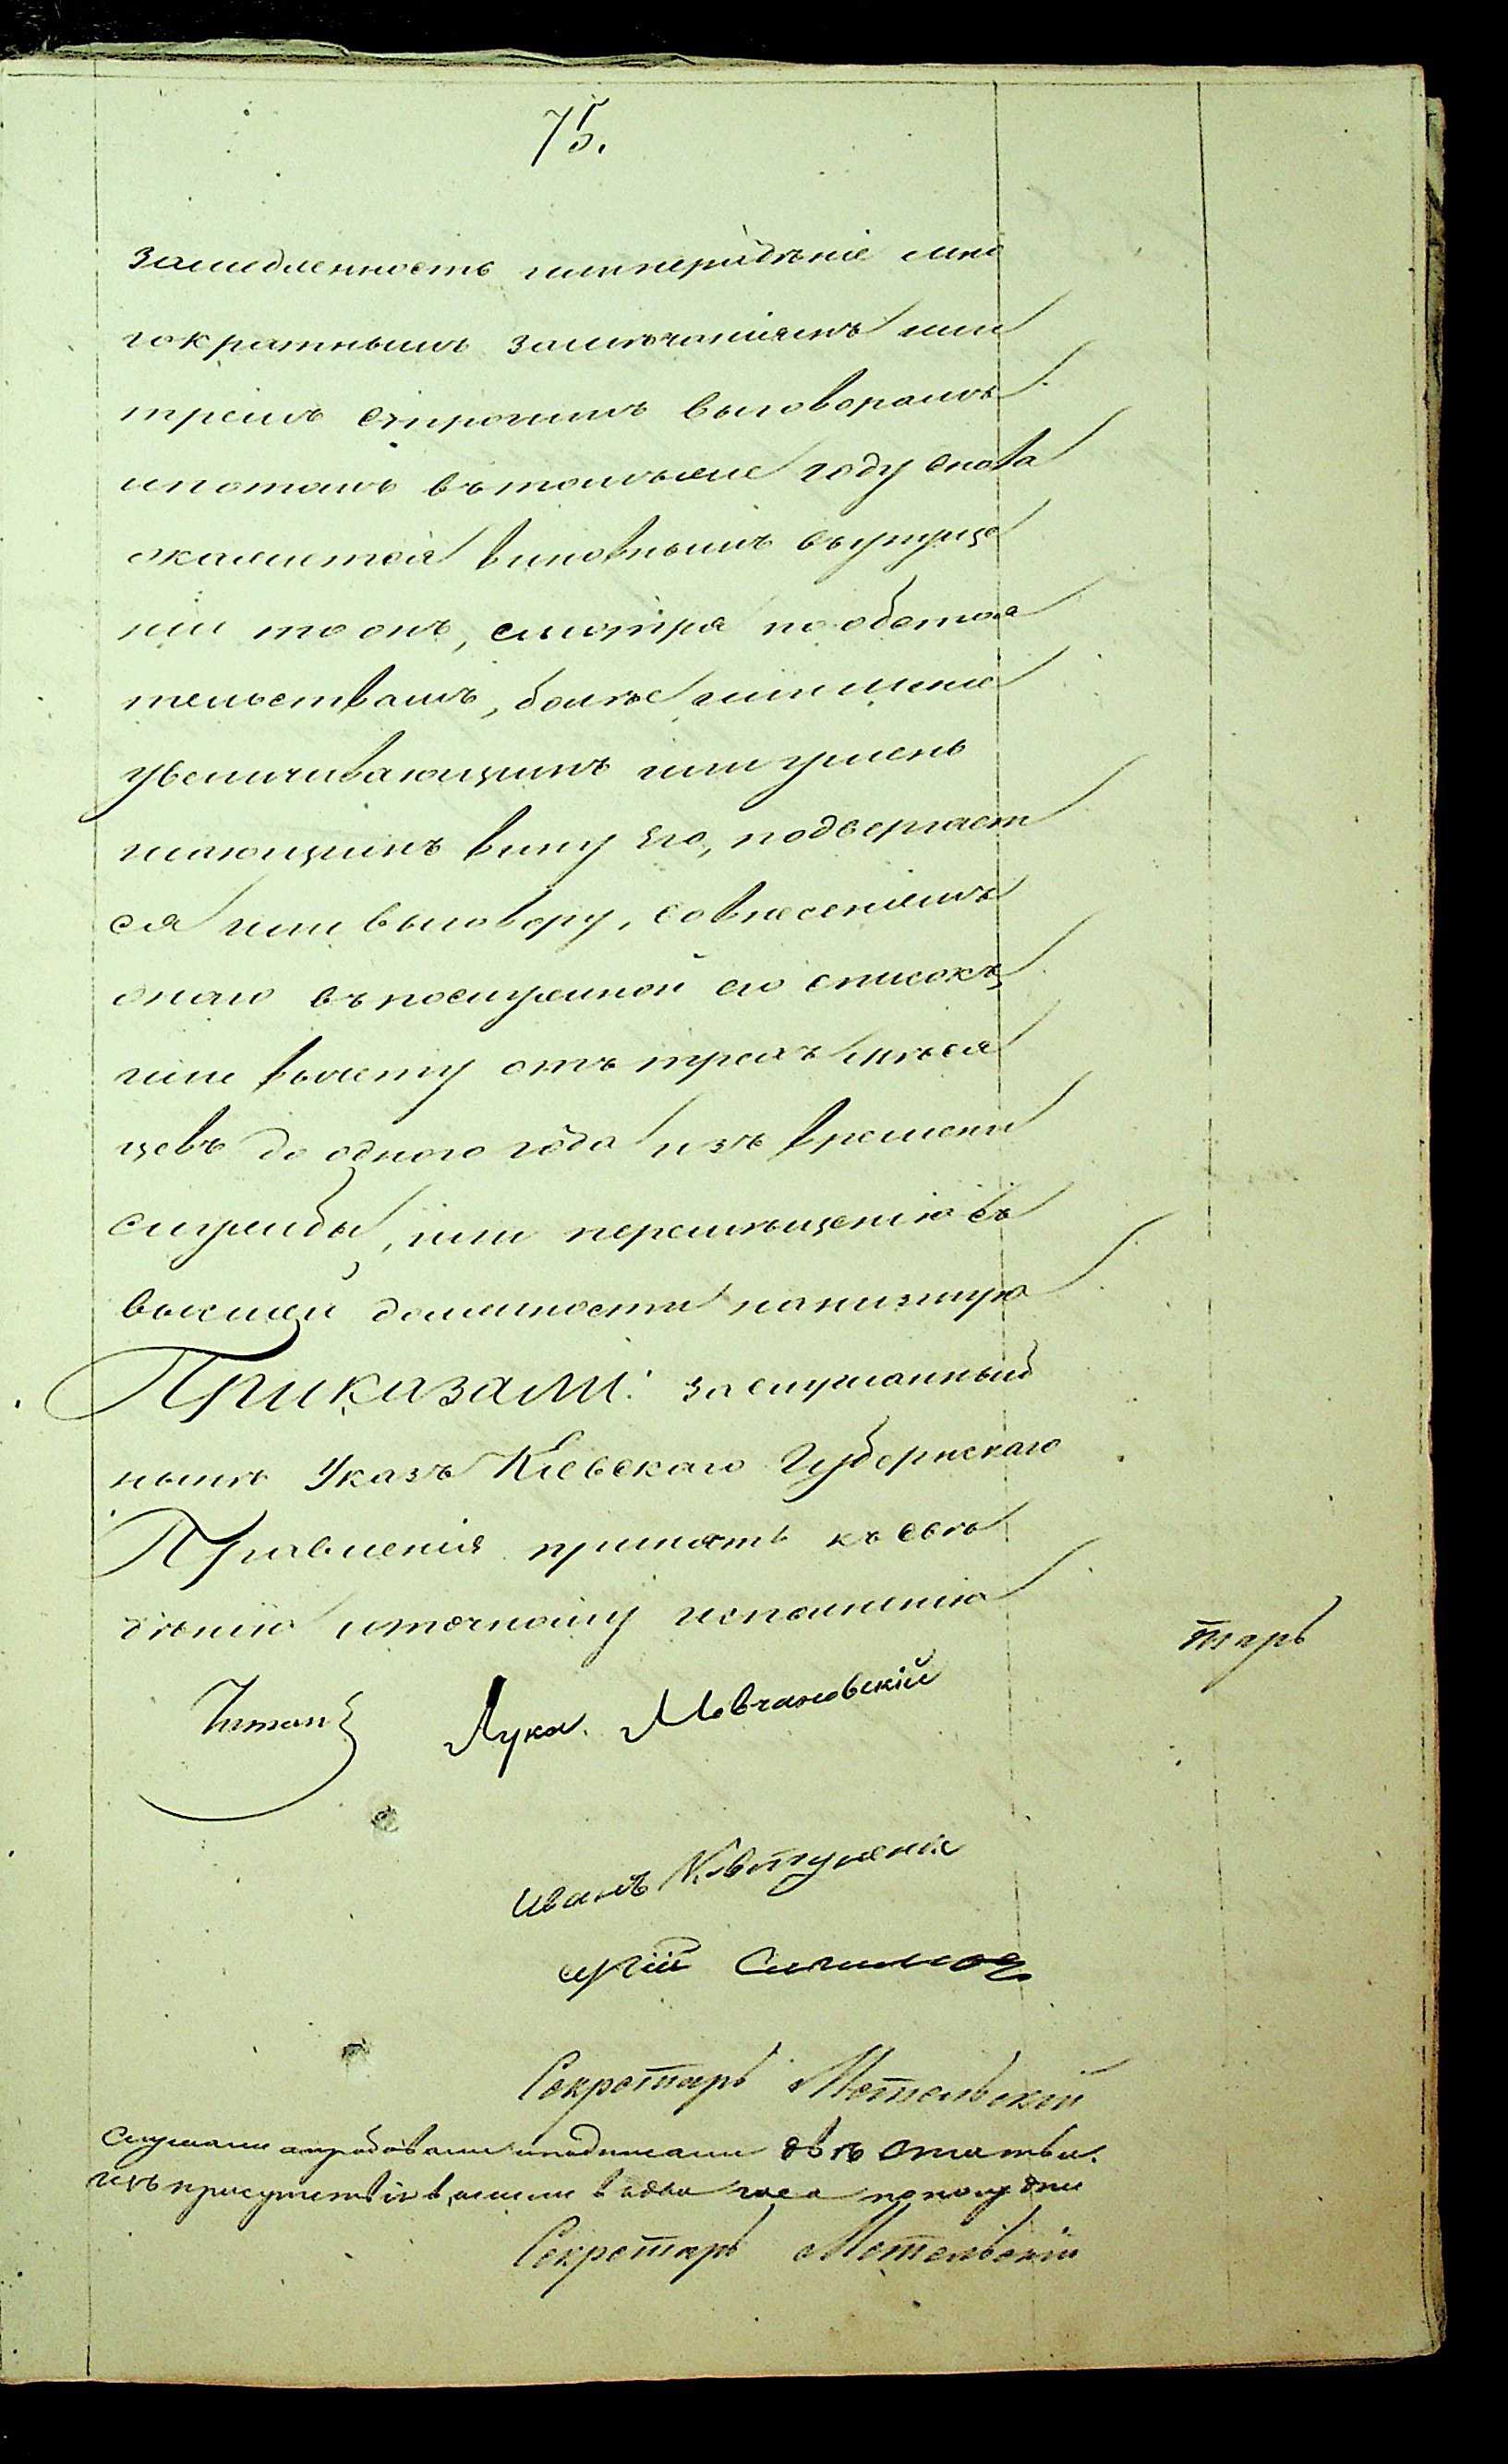 75.
замедленность или нерадѣніе мно
гократнымъ замѣчаніямъ или
тремъ строгимъ выговорамъ
и потомъ въ томъ же году снова
окажется виновнымъ въ упуще
ніи то онъ, смотря по обстоя
тельствамъ, болѣе или мене
увеличивающимъ или умень
шающимъ вину его, подвергает
ся или выговору, со внесеніемъ
онаго въ послужной его списокъ,
или вычету отъ трехъ мѣся
цевъ до одного года изъ времени
службы, или перемѣщенію съ
высшей должности на низшую
Приказали: заслушанный
нынѣ Указъ Кіевскаго Губернскаго
Правленія принять къ свѣ
дѣнію и точному исполненію
тарь
Читалъ Лука Мовчановскій
Иванъ Ковтуненко
Сергій
Секретарь Метельскій
Слушали апробовали и подписали двѣ статьи.
изъ присутствія вышли в два часа по полудни
Секретарь Метельскій